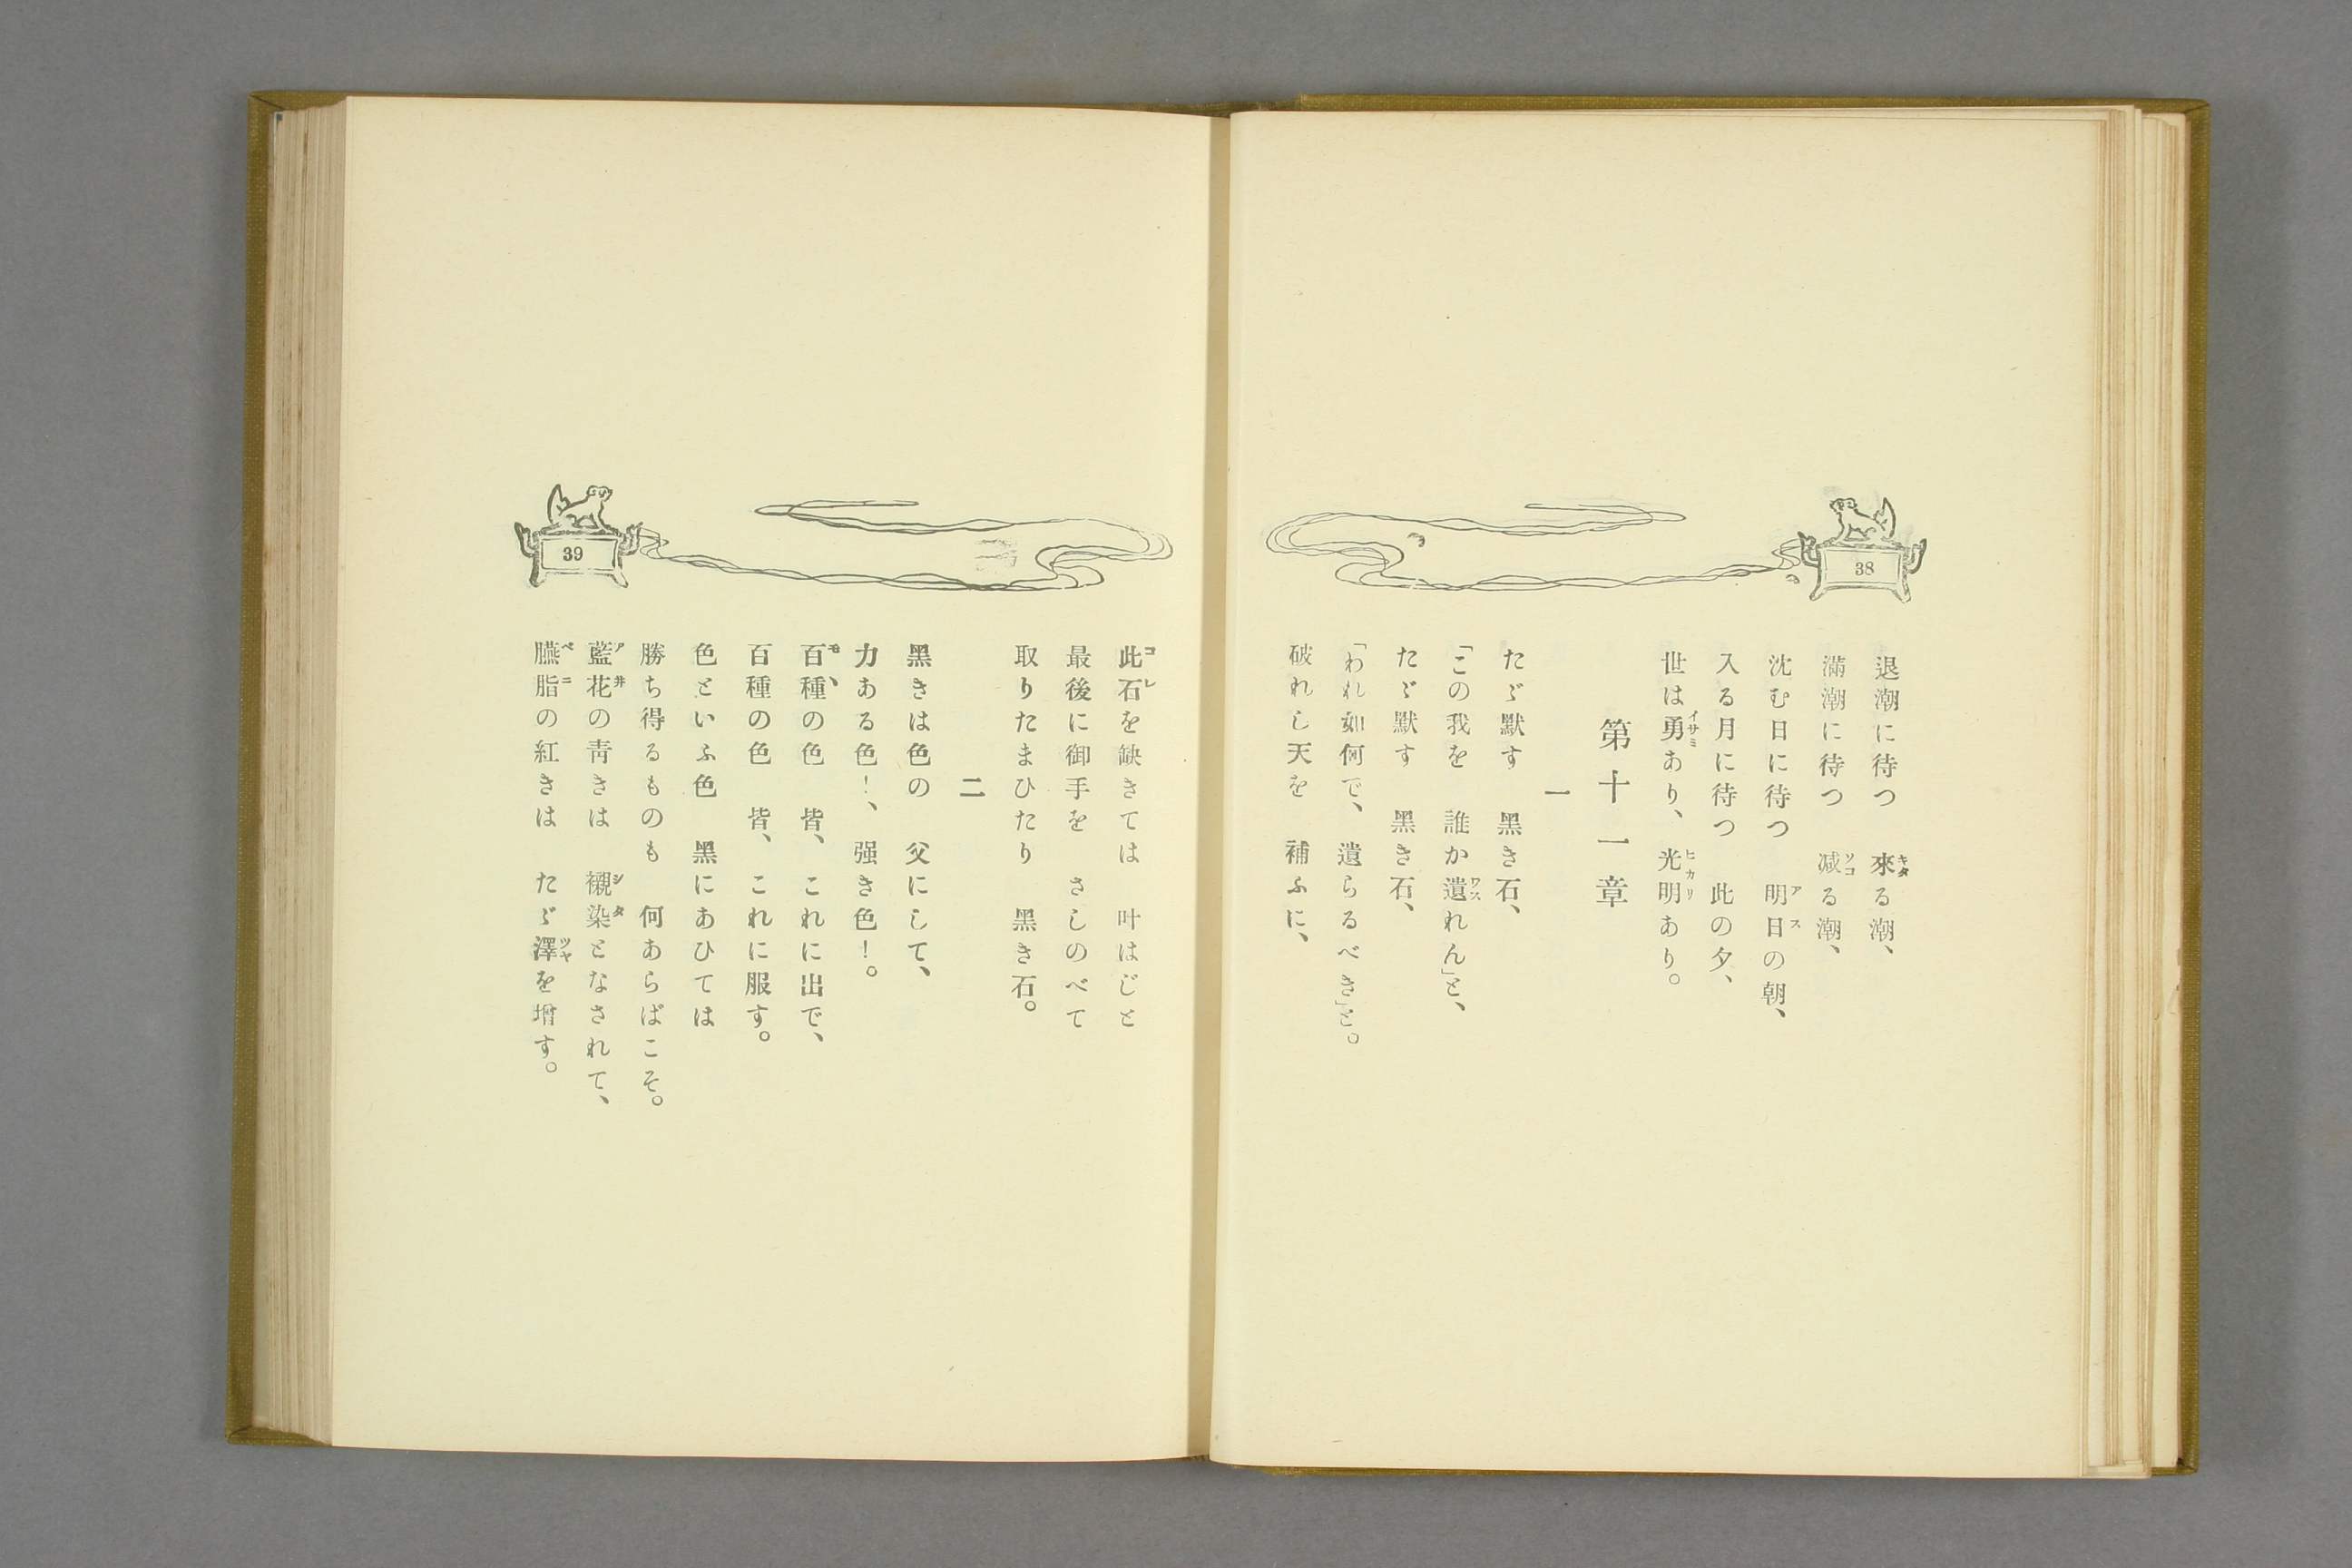 38
退潮に待つ　來る潮、
滿潮に待つ　減る潮、
沈む日に待つ　明日の朝、
入る月に待つ　此の夕、
世は勇あり、光明あり。
第十一章
一
たゞ默す　黑き石、
「この我を　誰か遺れん」と、
たゞ默す　黑き石、
「われ如何で、遺らるべき」と。
破れし天を　補ふに、
39
此石を缺きては　叶はじと
最後に御手を　さしのべて
取りたまひたり　黑き石。
二
黑きは色の　父にして、
力ある色！、强き色！。
百種の色　皆、これに出で、
百種の色　皆、これに服す。
色といふ色　黑にあひては
勝ち得るものも　何あらばこそ。
藍花の靑きは　襯染となされて、
臙脂の紅きは　たゞ澤を增す。